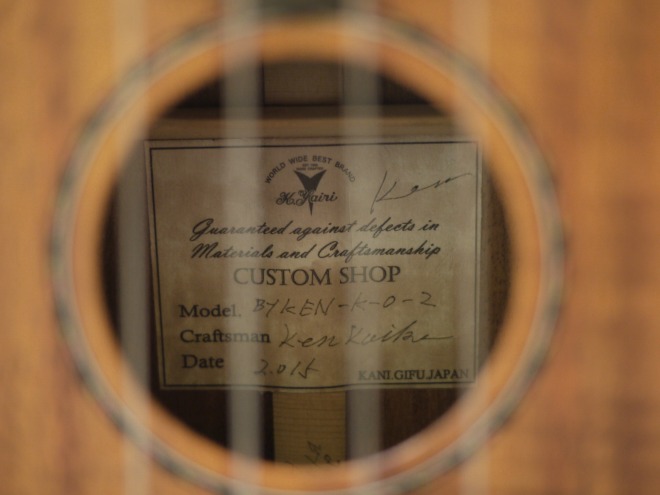 WORLD WIDE BEST BRAND
K.Yairi
Ken
Guaranteed against defects in
Materials and Craftsmanship
CUSTOM SHOP
Model. BYKEN-K-0-2
Craftsman Ken
Date 2.015
KANI.GIFU.JAPAN